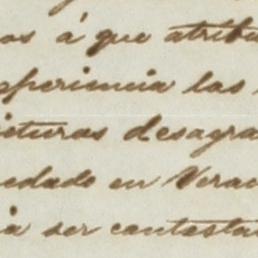 os á que atribu
speriencia las
ieturas desagra
edado en Verac
ia ser contesta